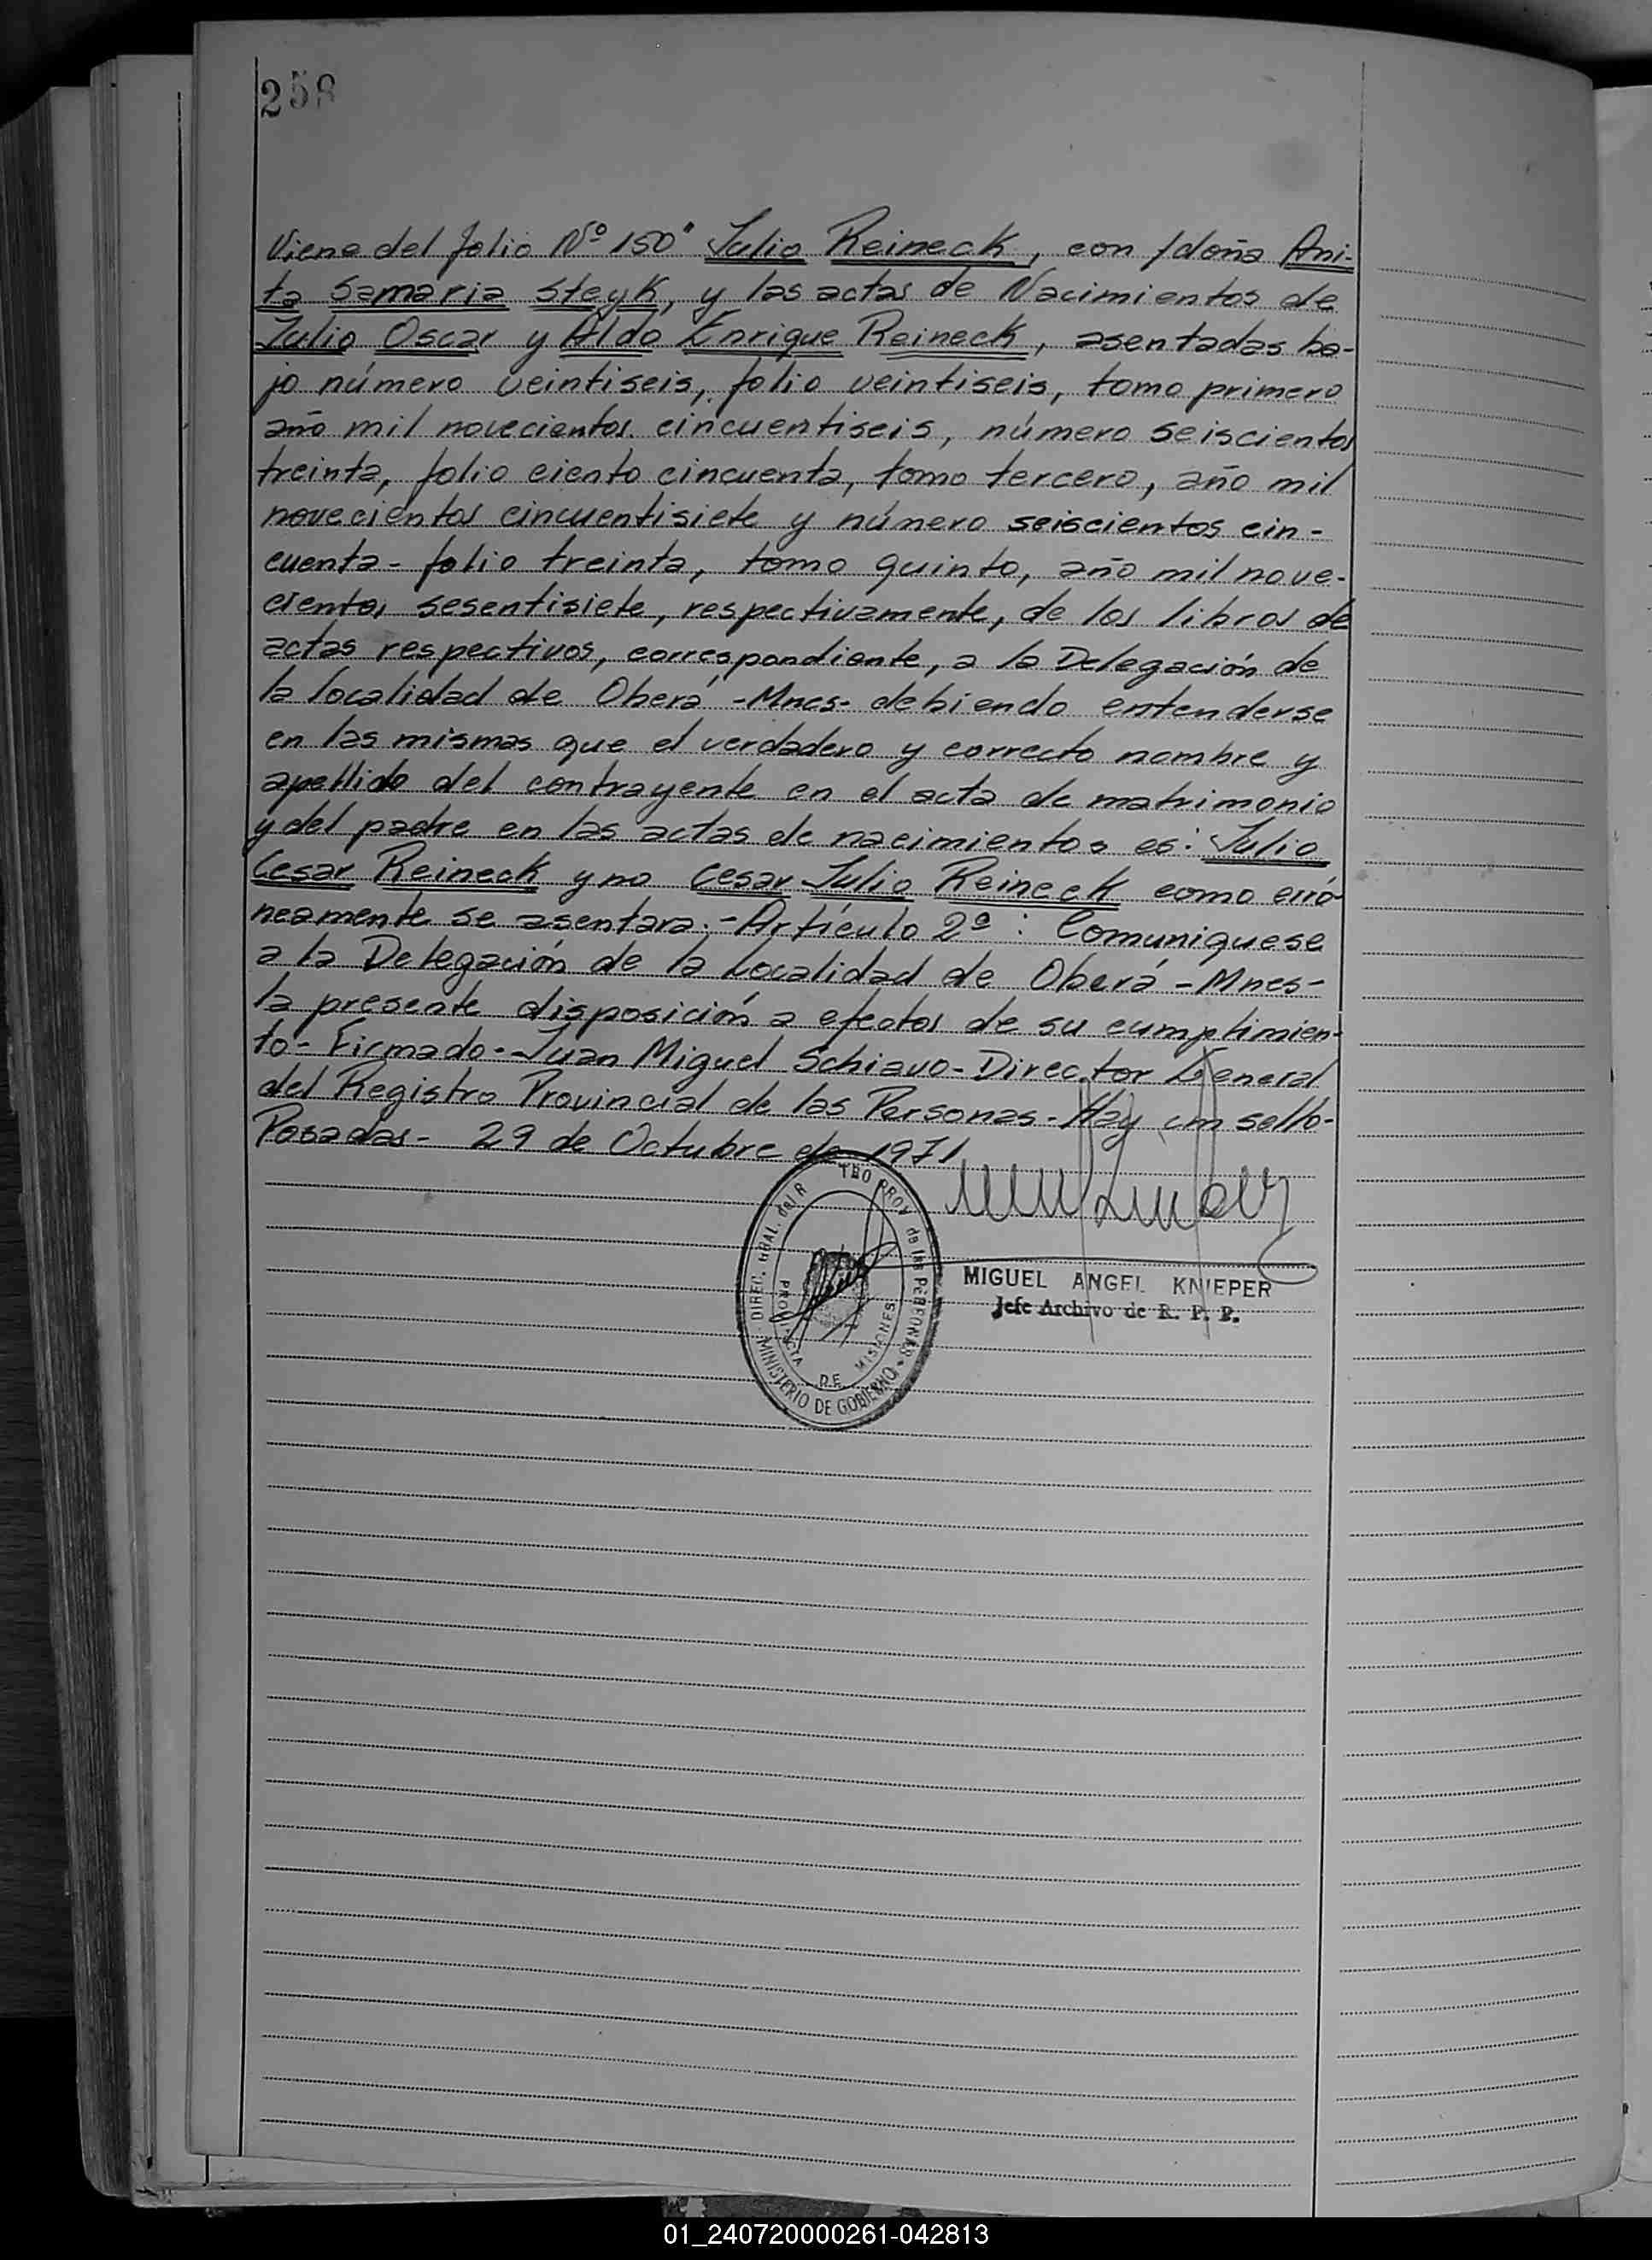 258
Viene del folio Nº 150" Julio Reineck, con /doña Ani-
ta Samaria Steyk, y las actas de Nacimientos de
Julio Oscar y Aldo Enrique Reineck, asentadas ba-
jo número veintiseis, folio veintiseis, tomo primero
año mil novecientos cincuentiseis, número seiscientos
treinta, folio ciento cincuenta, tomo tercero, año mil
novecientos cincuentisiete y número seiscientos cin-
cuenta - folio treinta, tomo quinto, año mil nove-
cientos sesentisiete, respectivamente, de los libros de
actas respectivos, correspondiente, a la Delegación de
la localidad de Oberá -Mnes- debiendo entenderse
en las mismas que el verdadero y correcto nombre y
apellido del contrayente en el acta de matrimonio
y del padre en las actas de nacimientos es: Julio
Cesar Reineck y no Cesar Julio Reineck como erró-
neamente se asentara.- Artículo 2º: Comuniquese
a la Delegación de la Localidad de Oberá - Mnes-
la presente disposición a efectos de su cumplimien-
to - Firmado - Juan Miguel Schiavo - Director General
del Registro Provincial de las Personas - Hay un sello -
Posadas - 29 de Octubre de 1971
DIREC. GRAL. del R TRO PROV de las PERSONAS
MINISTERIO DE GOBIERNO
PROVINCIA DE MISIONES
MIGUEL ANGEL KNIEPER
Jefe Archivo de R. P. P.
01_240720000261-042813